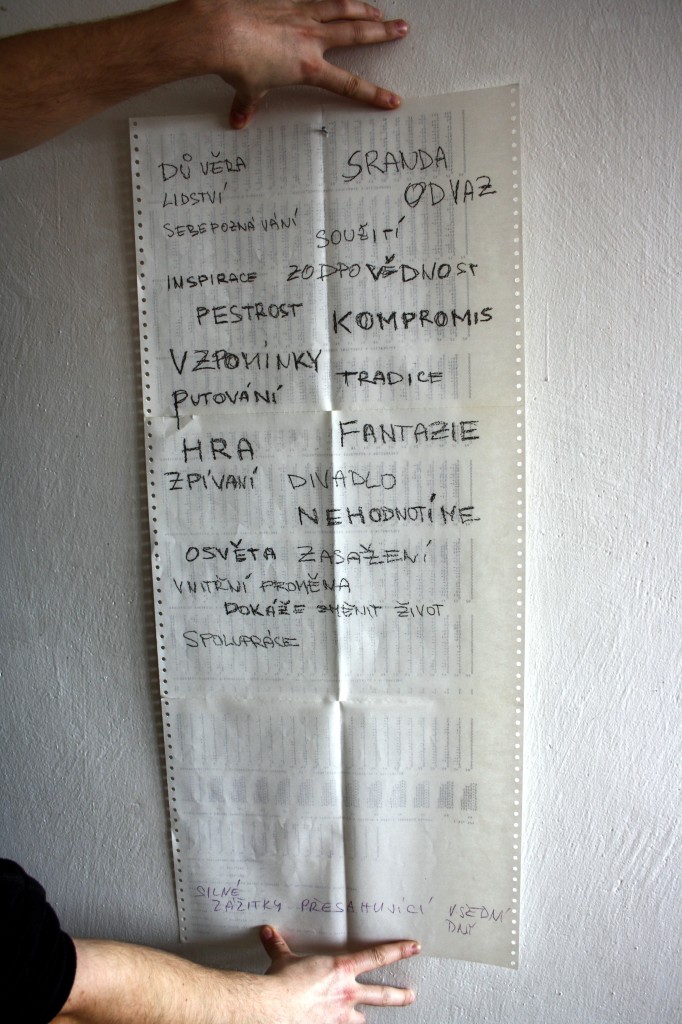 DŮVĚRA SRANDA
LIDSTVÍ ODVAZ
SEBEPOZNÁVÁNÍ SOUŽITÍ
INSPIRACE ZODPOVĚDNOST
PESTROST KOMPROMIS
VZPOMÍNKY TRADICE
PUTOVÁNÍ
HRA FANTAZIE
ZPÍVANÍ DIVADLO
NEHODNOTÍME
OSVĚTA ZASAŽENÍ
VNITŘNÍ PROMĚNA
DOKÁŽE ZMĚNIT ŽIVOT
SPOLUPRÁCE
SILNÉ
ZÁŽITKY PŘESAHUJÍCÍ VŠEDNÍ
DNY